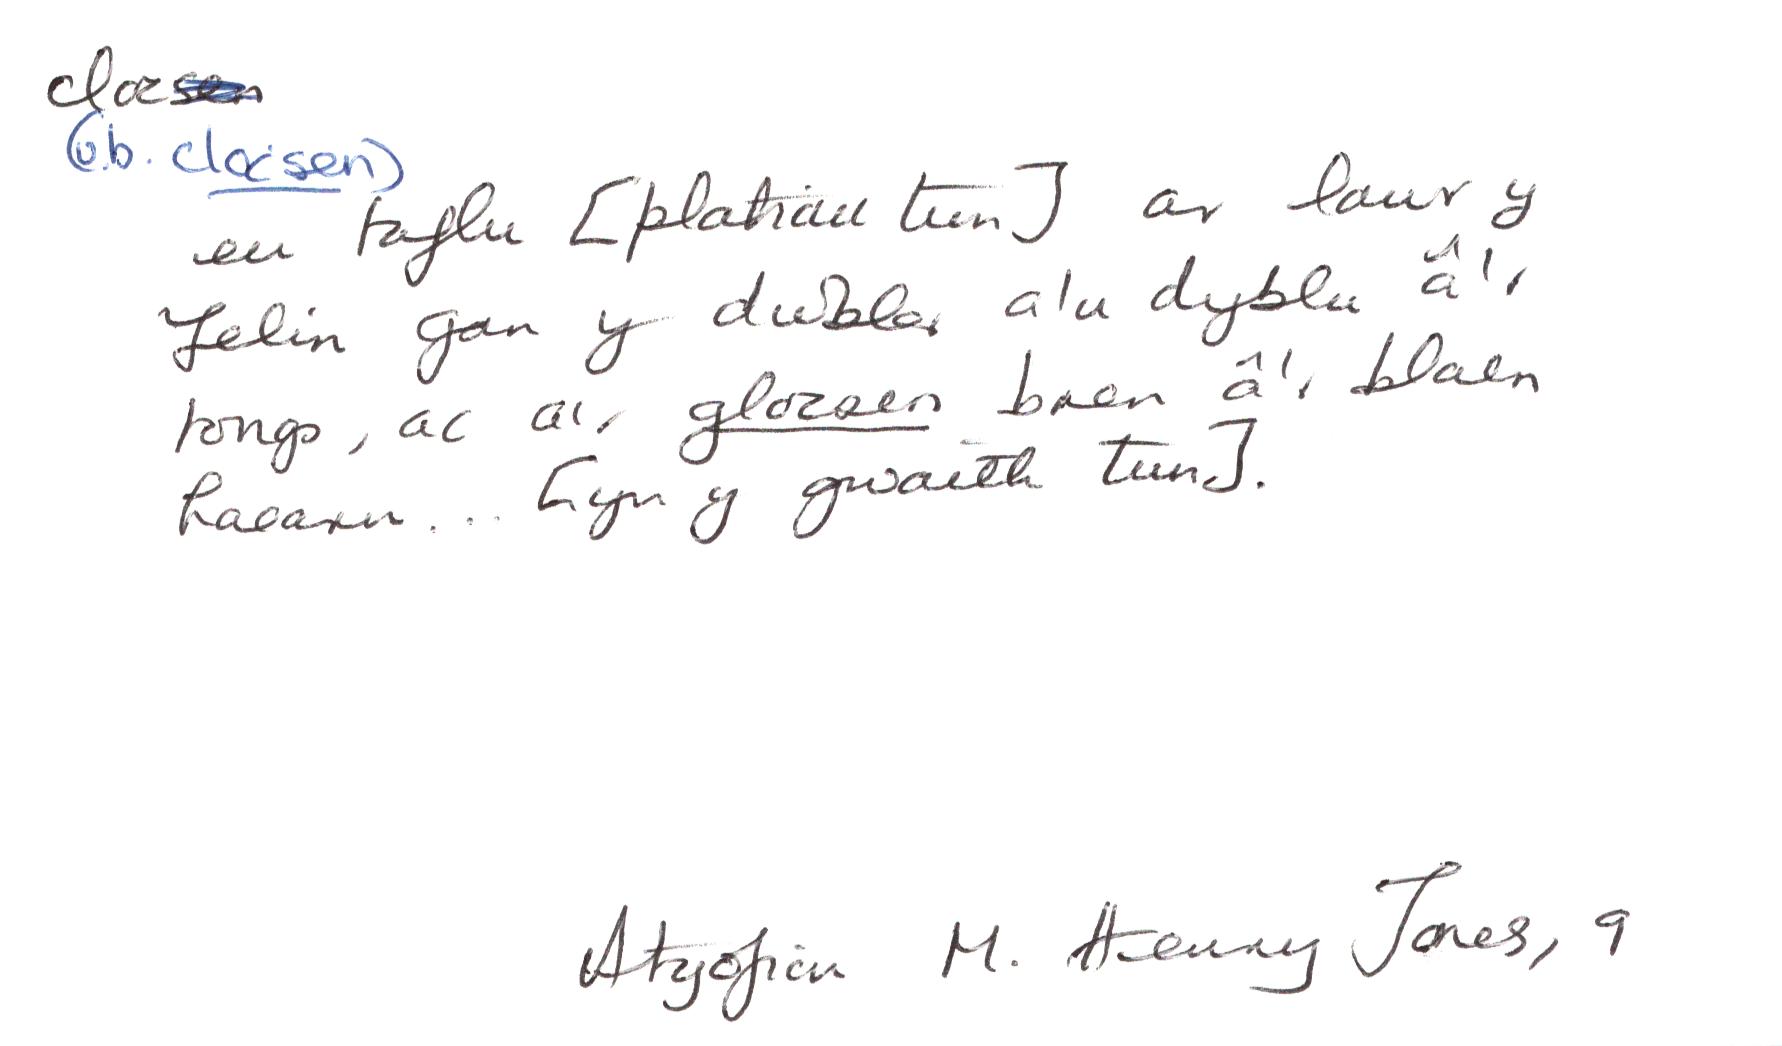 clocsen
(b. clocsen)
eu taflu [platiau tun] ar lawr y
felin gan y dwbler a'u dyblu â'r
tongs, ac a'r glocsen bren â'r blaen
haearn... [yn y gwaith tun].
Atgofion M. Henry Jones, 9